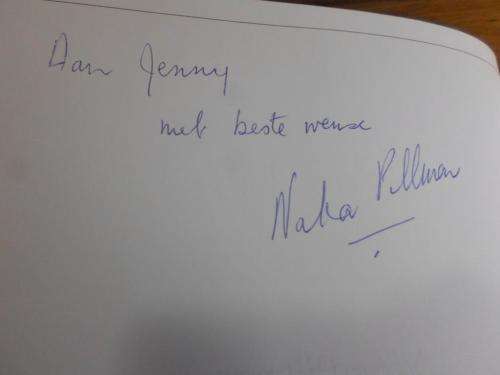 Aan Jenny
met beste wense
Naka Pillman